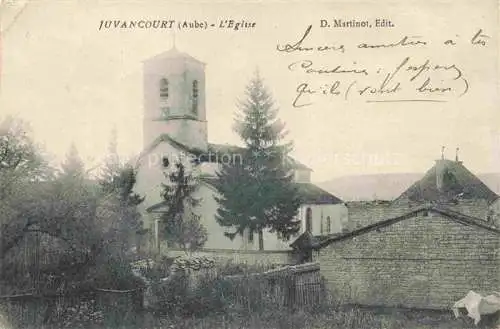 JUVANCOURT (Aube) - L'Eglise
D. Martinot, Edit.
Sincères amitiés à tes
Cousins, j'espère
Qu'ils (vont bien)